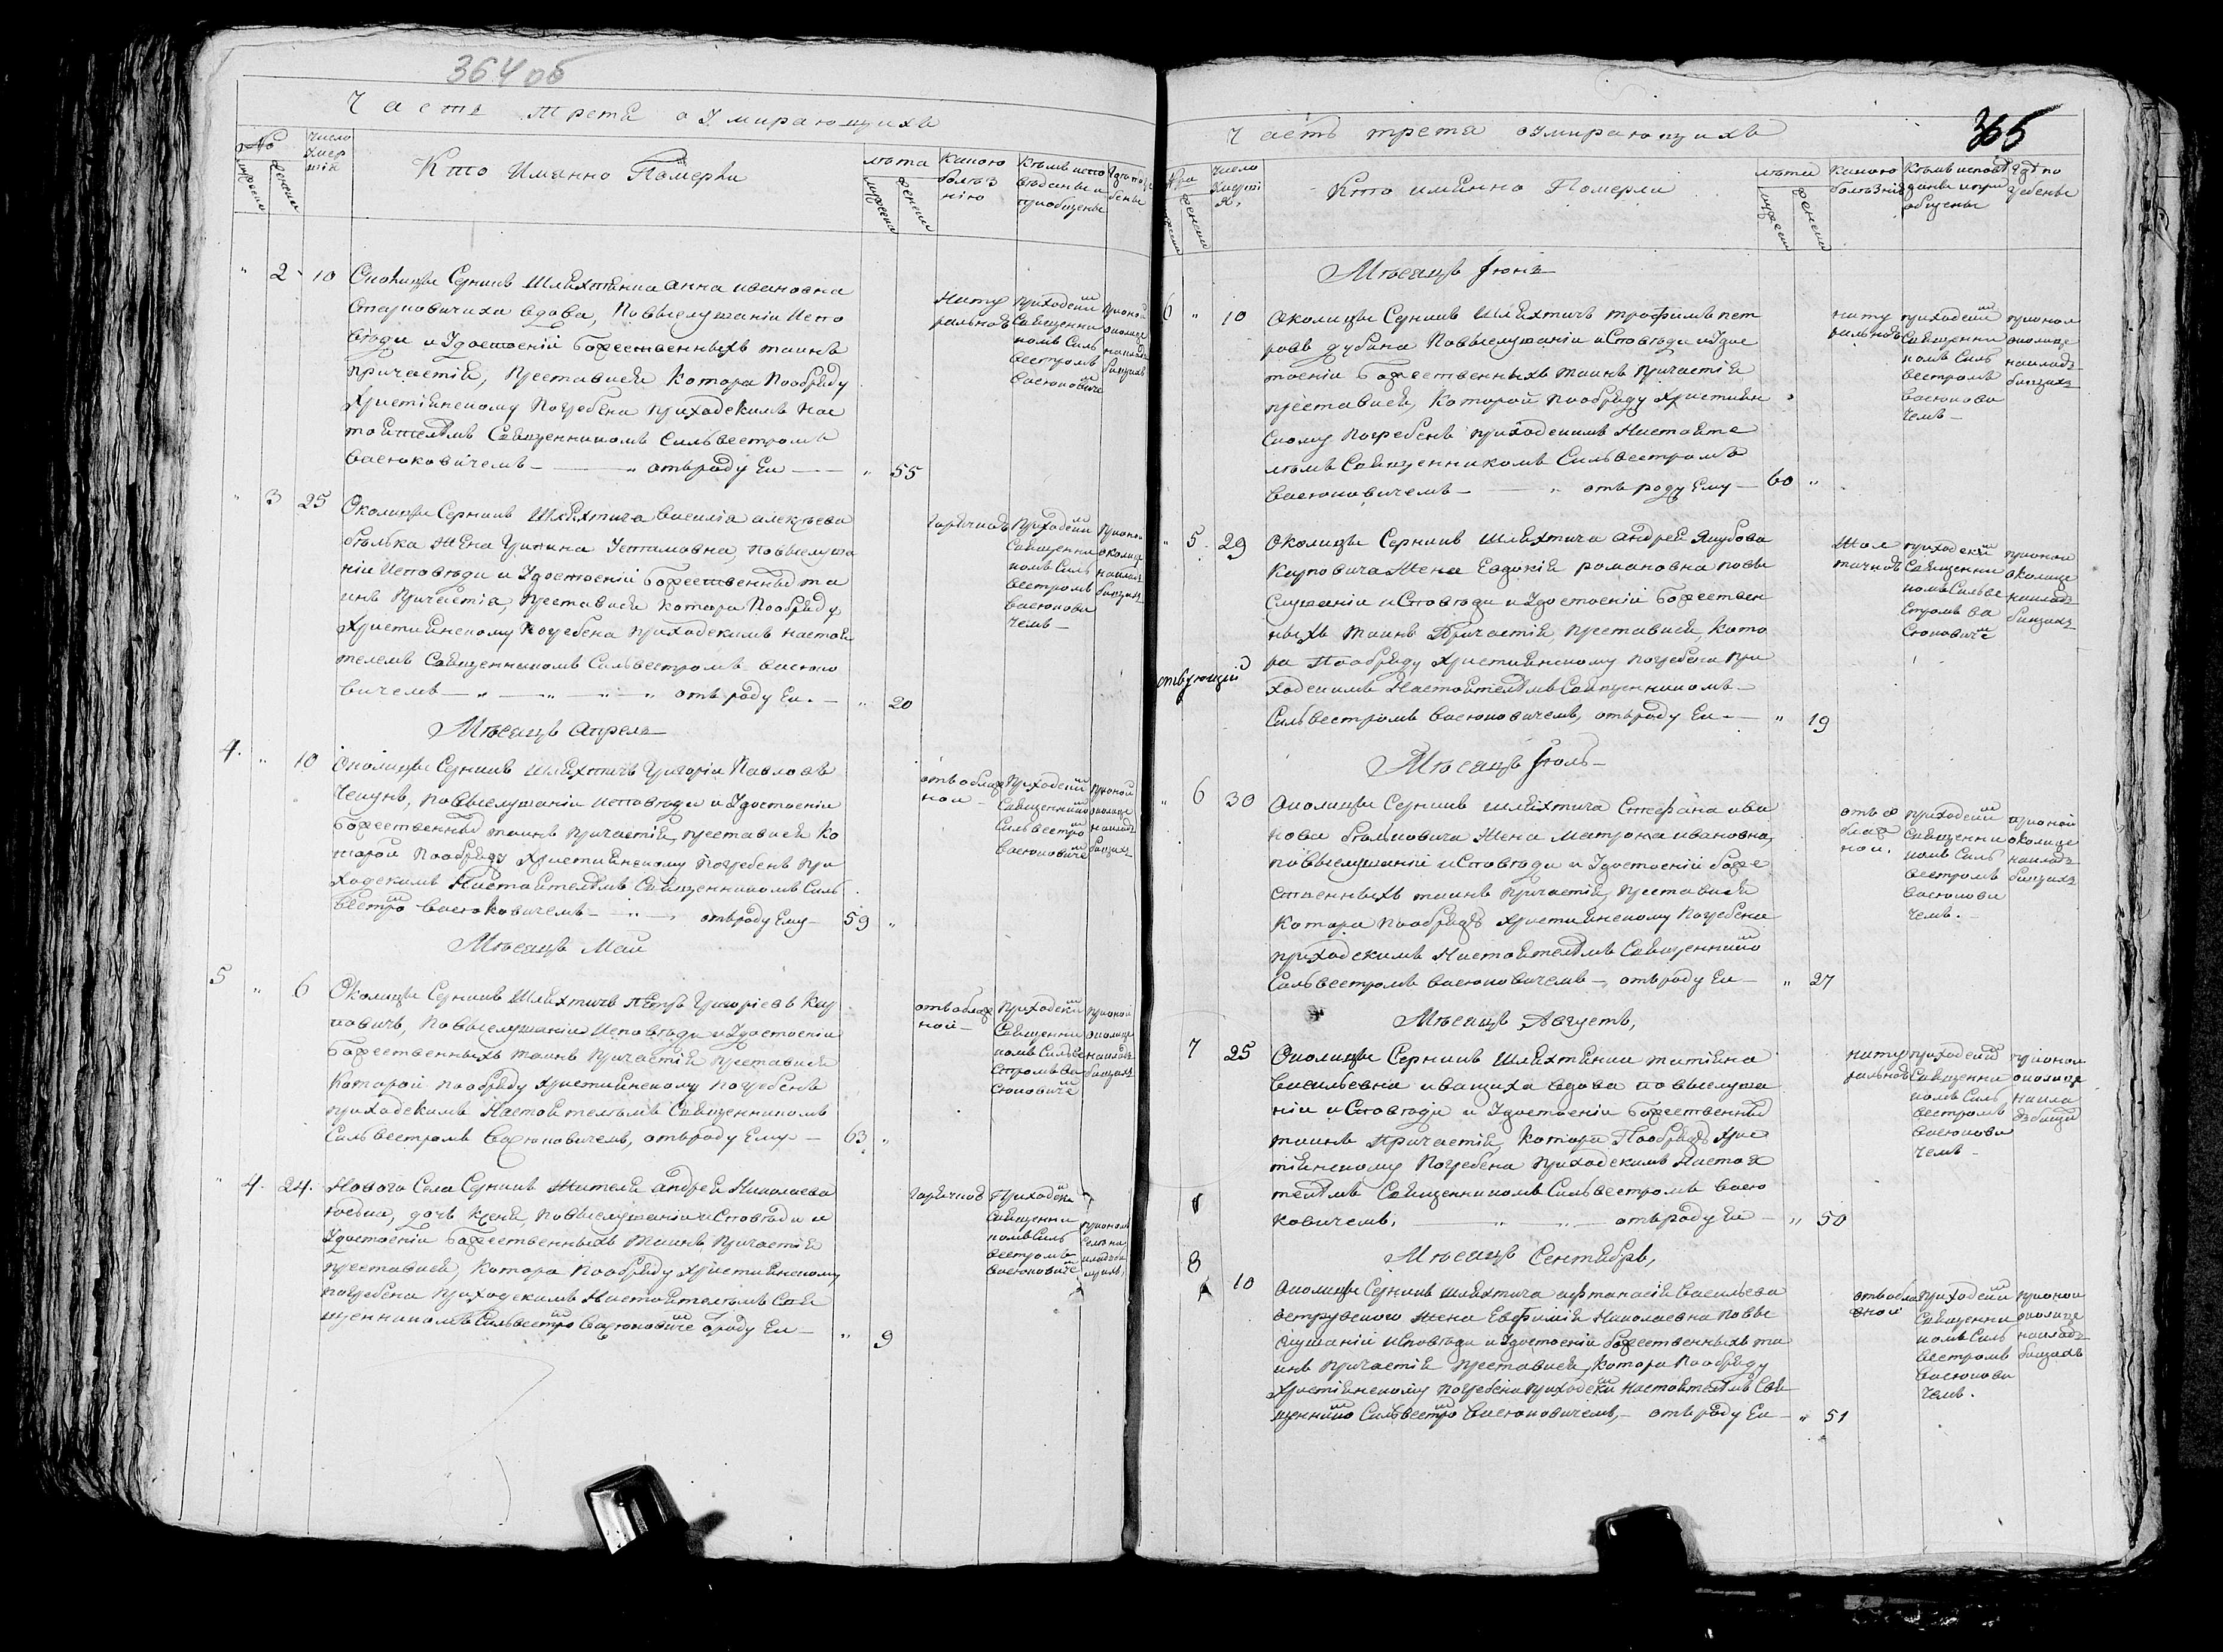 364 об
Часть третя о Умирающихъ
№
мужеска
женска
Число
Умер
шія
Кто Имянно Померли
лѣта
мужеска
женска
Какою
болѣз
нію
Кѣмъ испо
вѣданы и
приобщены
Гдѣ погре
бены
" 2 10 Околицы Серникъ Шляхтянка Анна Ивановна
вдова, По выслушаніи Испо
вѣди и Удостоеніи божественныхъ таинъ
причастія, преставися котора По обряду
Христіянскому Погребена приходскимъ нас
тоятелемъ Священникомъ Сильвестромъ
Васюковичемъ — " отъ роду Ея — " 55
Нату
ральною
приходским
Священни
комъ Силь
вестромъ
Васюковичем
при оной
околице
на кладъ
бищахъ
" 3 25 Околицы Серникъ Шляхтича Василія Алексѣева
бѣлька Жена Устимовна, по выслуша
ніи Исповѣди и Удостоеніи божественных та
инъ Причастія, преставися котора По обряду
Християнскому Погребена приходскимъ настоя
телемъ Священникомъ Сильвестромъ Васюко
вичемъ — " — " — " отъ роду Ея — " 20
горячкою
приходским
Священни
комъ Силь
вестромъ
Васюкови
чемъ —
при оной
околице
на кладъ
бищахъ
Мѣсяцъ Апрель
4. " 10 Околицы Серникъ Шляхтичъ Григорій Павловъ
по выслушаніи исповѣди и Удостоеніи
божественных таинъ причастія, преставися ко
торой По обряду Християнскому погребенъ при
ходскимъ Настоятелемъ Священникомъ Силь
вестром Васюковичемъ — " — " отъ роду Ему — 59 "
приходским
Священником
Сильвестро
Васюковичем
при оной
околице
на кладъ
бищахъ
Мѣсяцъ Май
5 " 6 Околицы Серникъ Шляхтичъ Петръ Григорьевъ Кар
повичъ, По выслушаніи Исповѣди и Удостоеніи
божественныхъ таинъ причастія преставися
Которой по обряду Християнскому погребенъ
приходскимъ Настоятелемъ Священникомъ
Сильвестромъ Васюковичемъ, отъ роду Ему — 63 "
приходским
Священни
комъ Сильве
стромъ Ва
сюковичем
при оной
околице
на кладъ
бищахъ
" 4. 24. Нового Села Серникъ Жителя Андрея Николаева
дочь по выслушаніи исповѣди и
Удостоеніи божественныхъ таинъ причастія
преставися, котора по обряду Християнскому
погребена приходскимъ Настоятелемъ Свя
щенникомъ Сильвестром Васюковичем отъ роду Ея — " 9
горячкою
Приходским
Священни
комъ Силь
вестромъ
Васюковичем
при оном
селѣ на
кладъби
щахъ
365
Часть третя о Умирающихъ
мужеска
женска
Число
Кто имянно Померли
лѣта
мужеска
женска
Какою
болѣзнію
Кѣмъ исповѣ
даны и при
общены
Гдѣ по
гребены
Мѣсяцъ Іюнь
6 " 10 Околицы Серникъ Шляхтичъ Трофимъ Пет
ровъ дубина По выслушаніи исповѣди и Удос
тоеніи божественныхъ таинъ причастія
преставися, которой по обряду Християн
скому погребенъ приходскимъ Настояте
лемъ Священникомъ Сильвестромъ
Васюковичемъ — " отъ роду Ему — 60 "
нату
ральною
приходским
Священни
комъ Силь
вестромъ
Васюкови
чемъ —
при оной
околице
на кладъ
бищахъ
" 5. 29 Околицы Серникъ Шляхтича Андрея Якубова
Карповича Жена Евдокія Романовна по вы
слушаніи исповѣди и Удостоеніи божествен
ныхъ таинъ Причастія, преставися, кото
ра По обряду Християнскому погребена при
ходскимъ Настоятелемъ Священникомъ
Сильвестромъ Васюковичемъ, отъ роду Ея — " 19
приходским
Священни
комъ Сильве
стромъ Ва
сюковичем
при оной
околице
на кладъ
бищахъ
Мѣсяцъ Іюль
" 6 30 Околицы Серникъ Шляхтича Стефана Ива
нова Жена Матрона Ивановна,
по выслушаніи исповѣди и Удостоеніи боже
ственныхъ таинъ причастія, преставися
котора по обряду Християнскому погребена
приходскимъ Настоятелемъ Священником
Сильвестромъ Васюковичемъ — отъ роду Ея — " 27
приходским
Священни
комъ Силь
вестромъ
Васюкови
чемъ. —
при оной
околице
на кладъ
бищахъ
Мѣсяцъ Августъ,
7 25 Околицы Серникъ Шляхтянка Татіяна
Васильевна вдова по выслуша
ніи исповѣди и Удостоеніи божественных
таинъ причастія, котора По обряду Хрис
тіянскому погребена приходскимъ Настоя
телемъ Священникомъ Сильвестромъ Васю
ковичемъ, — " — " — отъ роду Ея — " 50
нату
ральною
приходским
Священни
комъ Силь
вестромъ
Васюкови
чемъ —
при оной
околице
на кла
дъбищах
Мѣсяцъ Сентябрь,
8 10 Околицы Серникъ Шляхтича Афанасія Васильева
Жена Евфимія Николаевна по вы
слушаніи исповѣди и Удостоеніи божественныхъ та
инъ причастія преставися, котора по обряду
Христіянскому погребена приходским настоятелемъ Свя
щенником Сильвестром Васюковичемъ, — отъ роду Ея — " 51
приходским
Священни
комъ Силь
вестромъ
Васюкови
чемъ.
при оной
околице
на кладъ
бищахъ